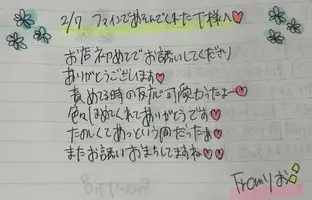 2/7 ファインであそんでくれたT様へ♡
お店初めてでお誘いしてくださり
ありがとうございます♡
責めてる時の反応可愛かったよー♡
色々ほめてくれてありがとうです♡
たのしくてあっという間だったぁ♡
またお誘いおまちしてますね♡♡
Fromりお